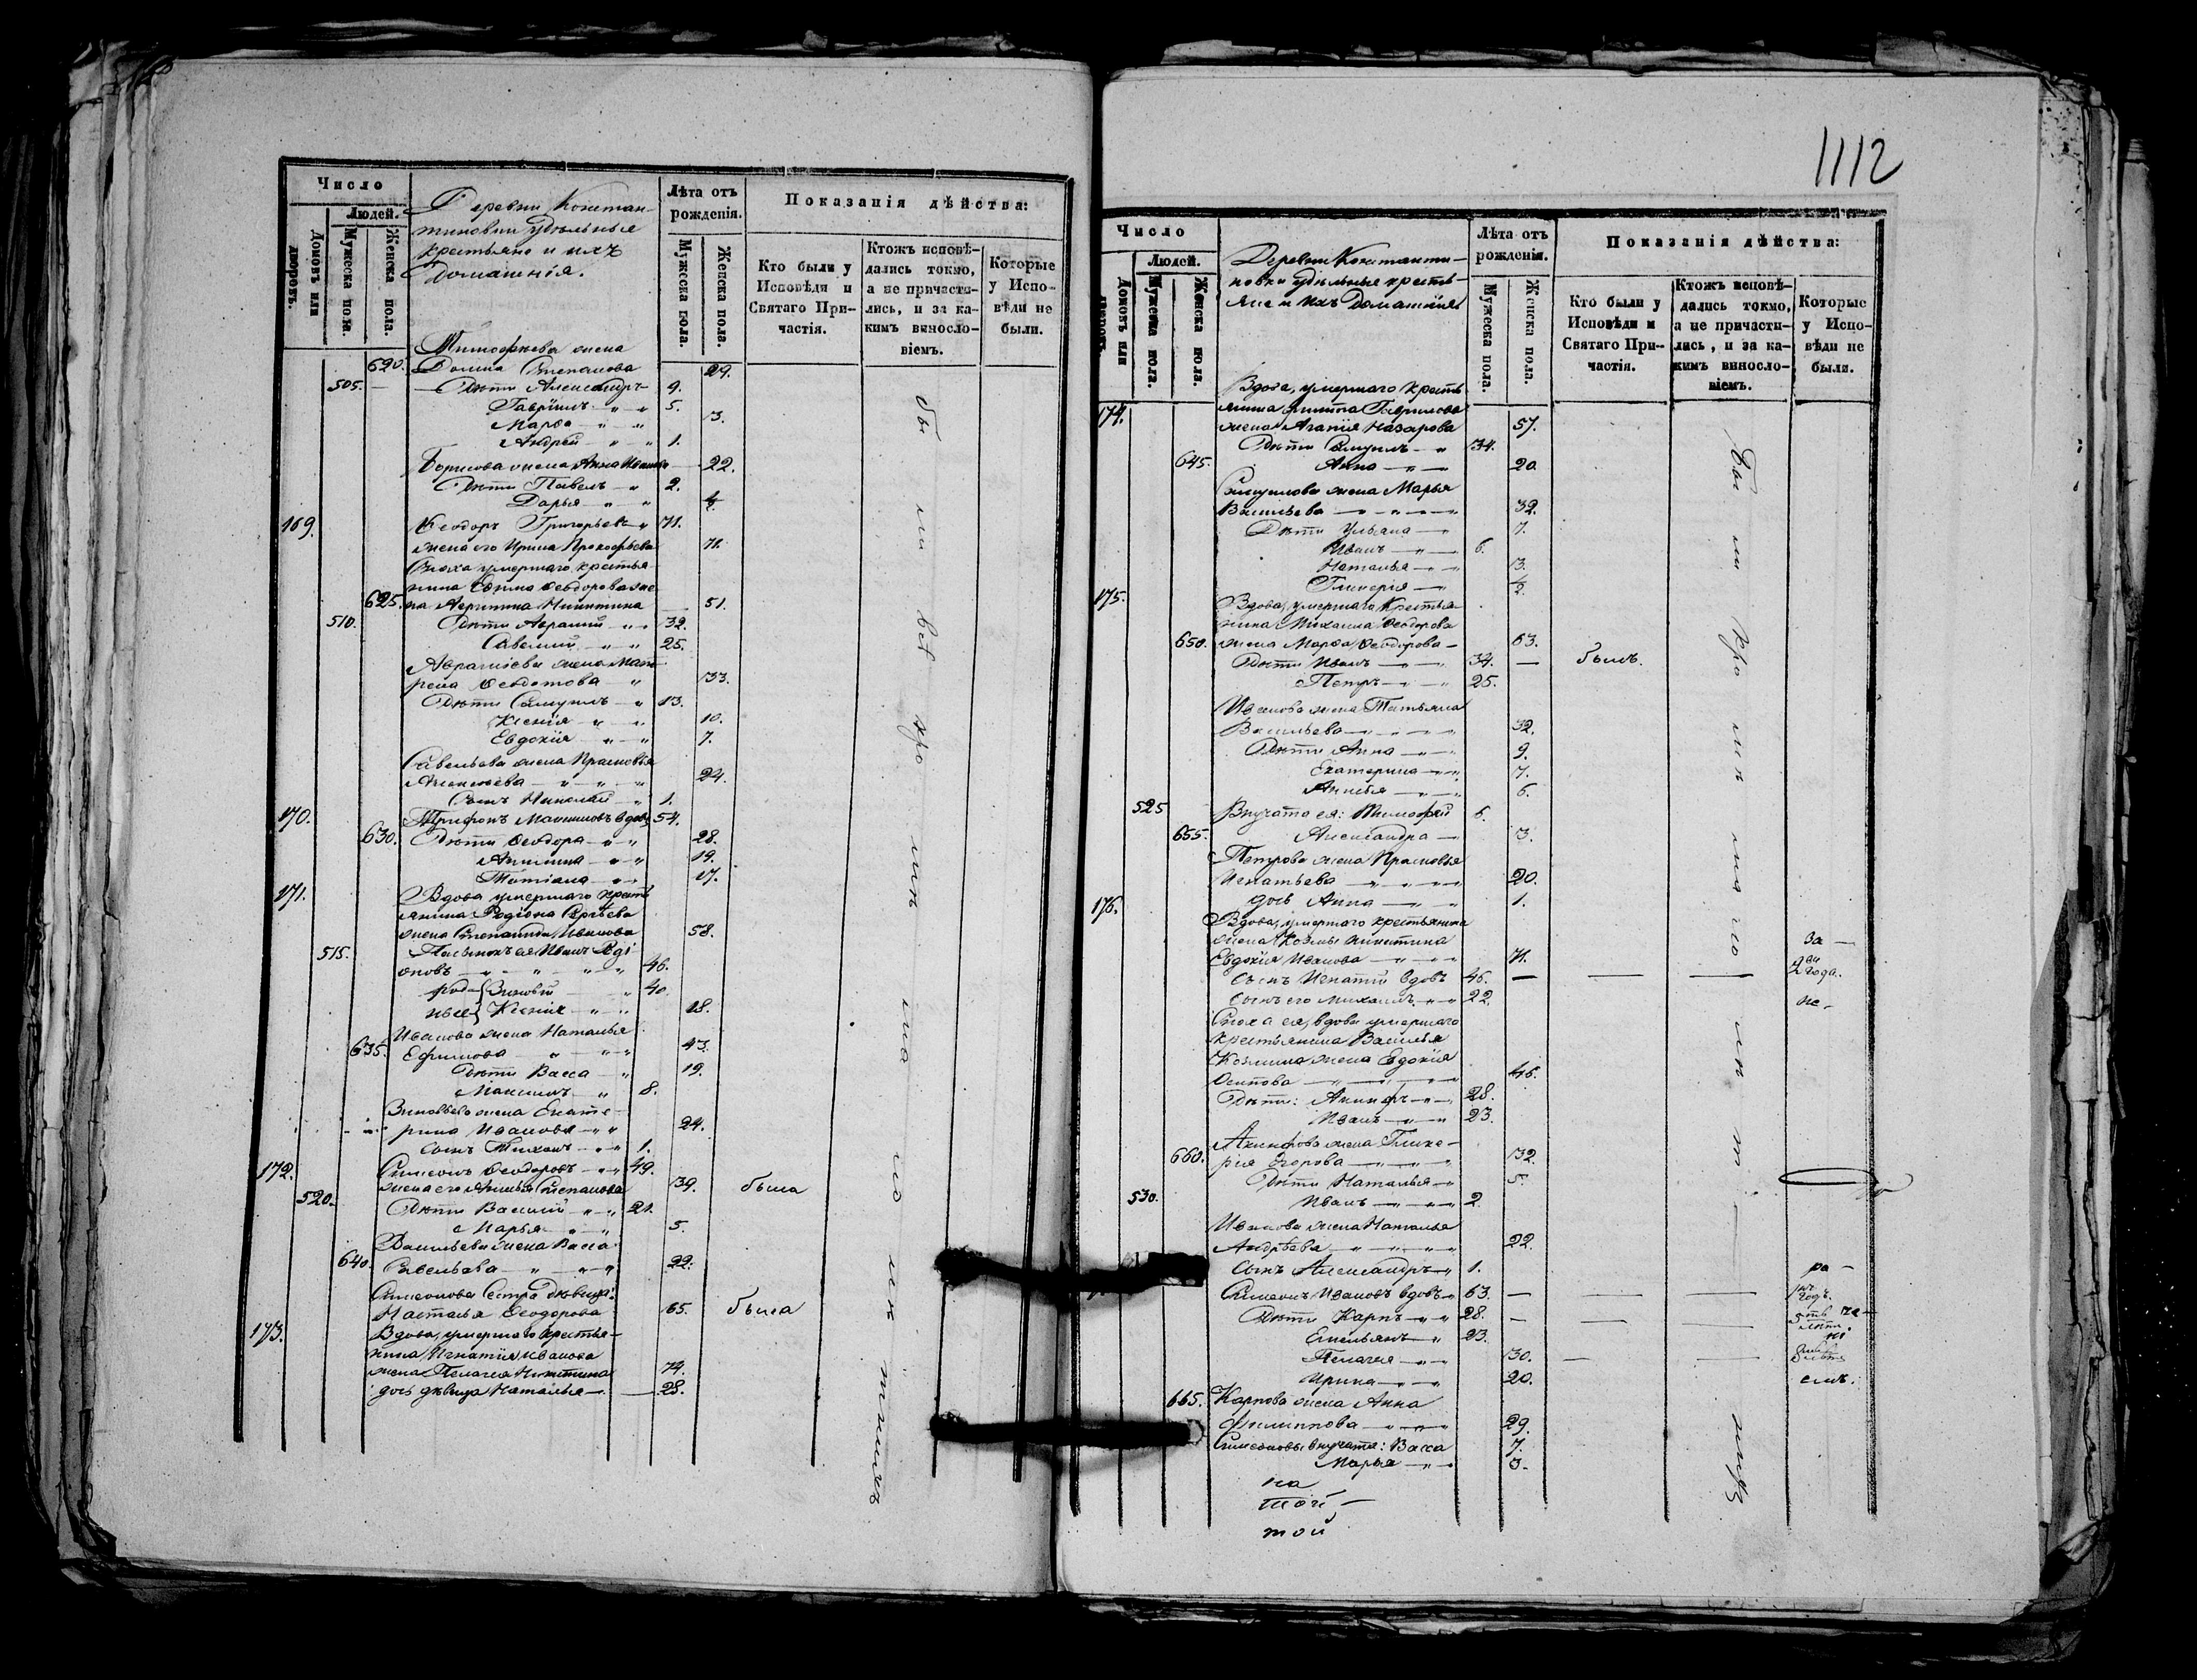 Число
Людей.
Домовъ или дворовъ.
Мужеска пола.
Женска пола.
Деревни Констан-
тиновки удѣльные
крестьяне и ихъ
домашнія.
Лѣта отъ рожденія.
Мужеска пола.
Женска пола.
Показанія дѣйства:
Кто были у Исповѣди и Святаго При-частія.
Ктожъ исповѣ-дались токмо, а не причасти-лись, и за ка-кимъ винosло-віемъ.
Которые у Испо-вѣди не были.
Тимофѣева жена
620. Домна Степанова 29.
505. Дѣти Александръ 9.
Гавріилъ 5.
Марѳа 3.
Андрей 1.
Борисова жена Анна Иванова 22.
Дѣти Павелъ 2.
Дарья ½
169. Ѳеодоръ Григорьевъ 71.
жена его Ирина Прокофьева 71.
Сноха умершаго крестья-
нина Ефима Ѳеодорова же-
625. на Агрипина Никитина 51.
510. Дѣти Авраамій 32.
Савелий 25.
Авраміева жена Мат-
рена Ѳедотова 33.
Дѣти Самуилъ 13.
Ксенія 10.
Евдокія 7.
Савельева жена Прасковья
Алексѣева 24.
Сынъ Николай 1.
170. Трифонъ Максимовъ вдовъ 54.
630. Дѣти Ѳеодора 28.
Акилина 19.
Татіана 17.
171. Вдова умершаго кресть
янина Родіона Сергѣева
жена Степанида Иванова 58.
515. Пасынокъ ея Иванъ Роді
оновъ 46.
родные Зиновій 40.
Ксенія 18.
Иванова жена Наталья
635. Ефимова 43.
Дѣти Васса 19.
Максимъ 8.
Зиновьева жена Екате-
рина Иванова 24.
сынъ Тихонъ 1.
172. Симеонъ Ѳеодоровъ 49.
жена его Степанова 39. была
520. Дѣти Василій 21.
Марья 5.
Васильева жена Васса
640. Савельева 22.
Симеонова сестра дѣвица
Настасья Ѳеодорова 65. была
173. Вдова, умершаго крестья-
нина Игнатія Иванова
жена Пелагея Никитина 74.
дочь дѣвица Наталья 28.
1112
Число
Людей.
Домовъ или дворовъ.
Мужеска пола.
Женска пола.
Деревни Константи-
новки удѣльные кресть-
яне и ихъ домашнія
Лѣта отъ рожденія.
Мужеска пола.
Женска пола.
Показанія дѣйства:
Кто были у Исповѣди и Святаго При-частія.
Ктожъ исповѣ-дались токмо, а не причасти-лись, и за ка-кимъ винosло-віемъ.
Которые у Испо-вѣди не были.
Вдова, умершаго кресть
174. янина Гаврилова
жена Агапія Назарова 57.
Дѣти Самуилъ 34.
645. Анна 20.
Самуилова жена Марья
Васильева 32.
Дѣти Ульяна 7.
Иванъ 6.
Наталья 3.
Гликерія ½
175. Вдова, умершаго крестья-
нина Михаила Ѳеодорова
650. жена Марѳа Ѳеодорова 63.
Дѣти Иванъ 34. былъ.
Петръ 25.
Иванова жена Татьяна
Васильева 32.
Дѣти Анна 9.
Екатерина 7.
6.
525 Внучата ея: Тимоѳей 6.
655. Александра 3.
Петрова жена Прасковья
Игнатьева 20.
дочь Анна 1.
176. Вдова, умершаго крестьянина
жена Козмы Никитина
Евдокія Иванова 71.
Сынъ Игнатій вдовъ 46.
Сынъ его Михаилъ 22.
Сноха ея, вдова умершаго
крестьянина Василья
Козмина жена Евдокія
Осипова 46.
Дѣти: Акинфъ 28.
Иванъ 23.
Акинфова жена Глике-
660. рія Егорова 32.
Дѣти Наталья 5.
530. Иванъ 2.
Иванова жена Наталья
Андрѣева 22.
Сынъ Александръ 1.
Симеонъ Ивановъ вдовъ 63.
Дѣти Карпъ 28.
Емельянъ 23.
Пелагея 30.
Ирина 20.
665. Карпова жена Анна
Филиппова 29.
Симеоновы внучата: Васса 7.
Марья 3.